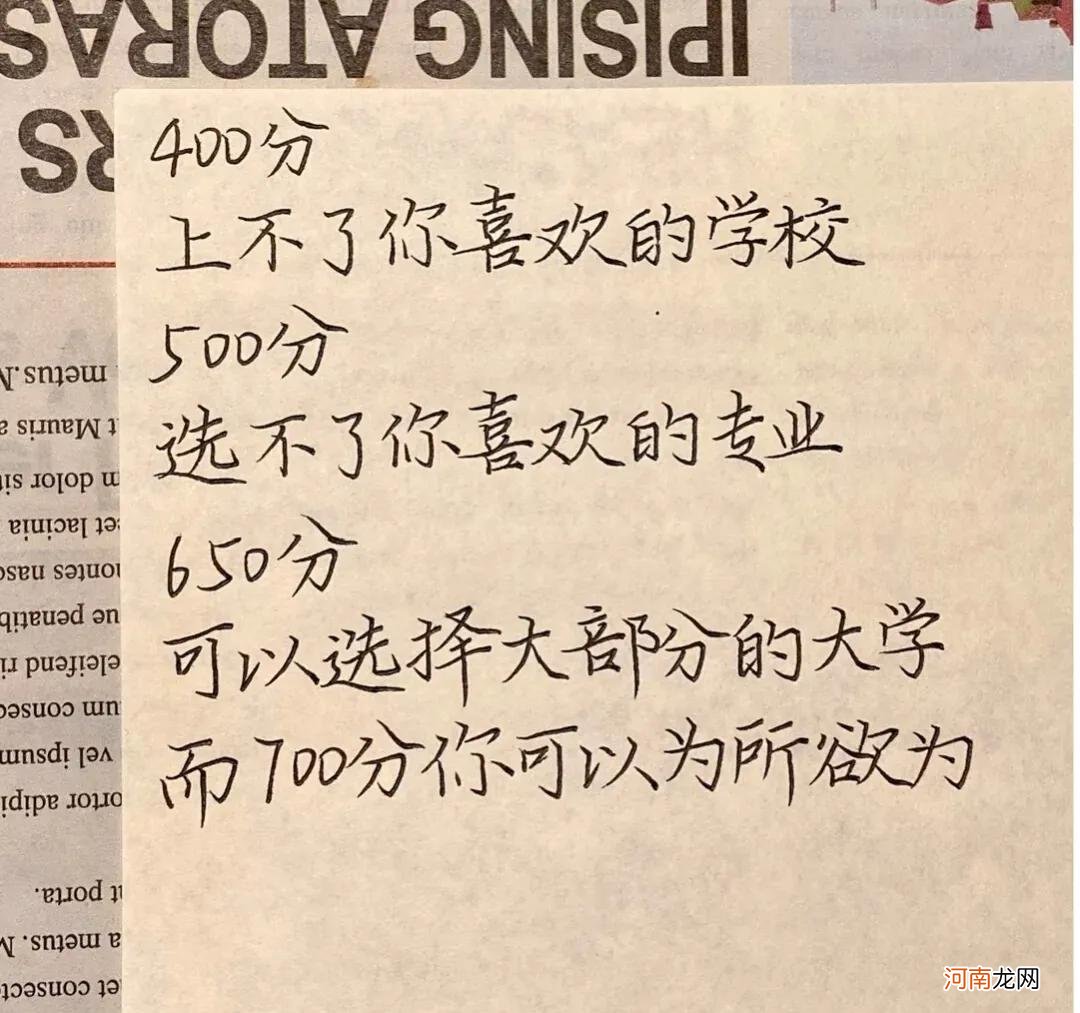 IPISING ATORAS
RS
400分
上不了你喜欢的学校
500分
选不了你喜欢的专业
650分
可以选择大部分的大学
而700分你可以为所欲为
metus.
t Mauris a
dolor sit
et lacinia
montes nasc
penatib
eleifend ri
um consec
vel ipsum
ortor adipi
porta.
a metus. M
et consecte
河南龙网